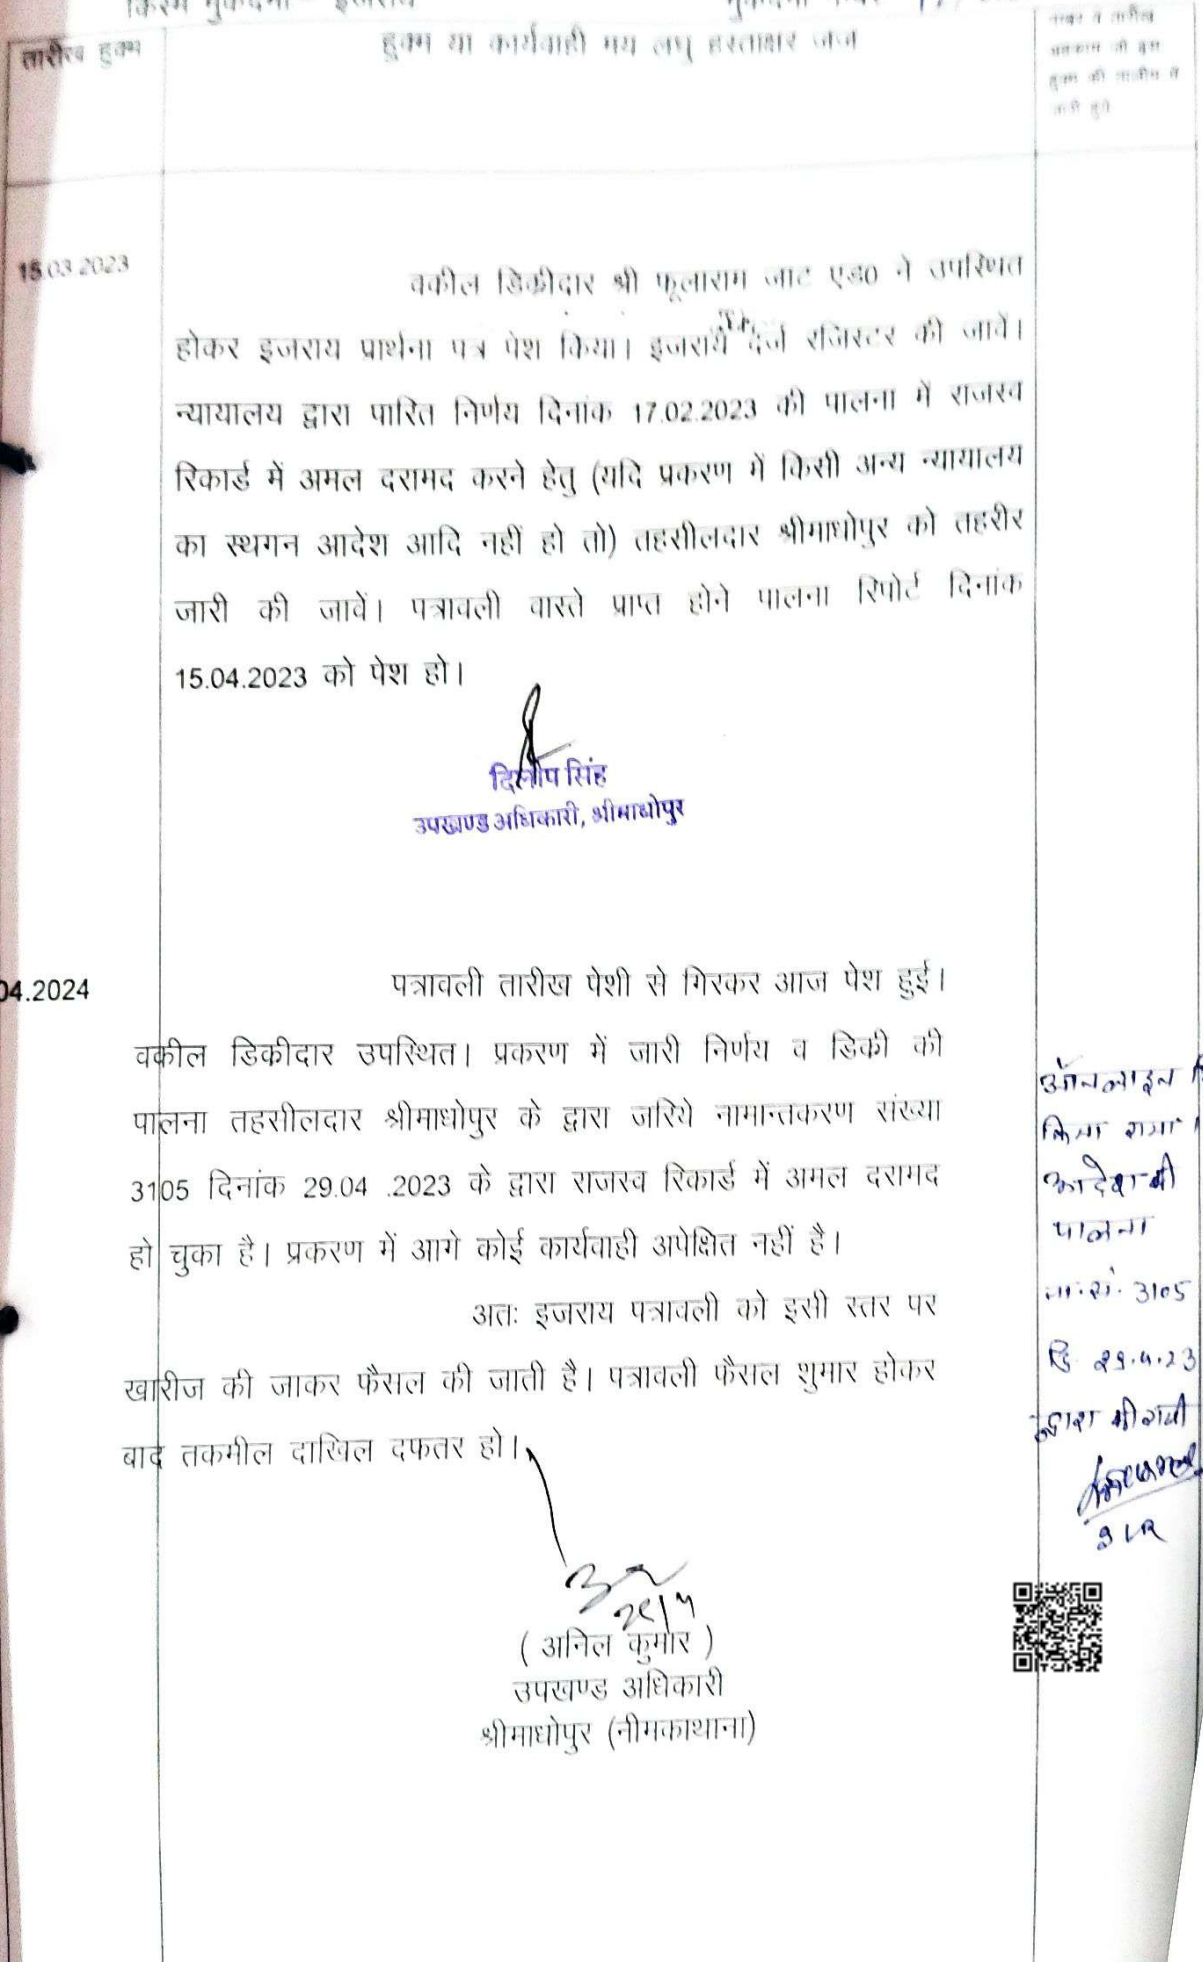 किस्म मुकदमा – इजराय
तारीख हुक्म
हुक्म या कार्यवाही मय लघु हस्ताक्षर जज
नम्बर व तारीख
अहकाम जो इस
हुक्म की तामील में
जारी हुये
15.03.2023
वकील डिक्रीदार श्री फूलाराम जाट एड0 ने उपस्थित
होकर इजराय प्रार्थना पत्र पेश किया। इजराय दर्ज रजिस्टर की जावें।
न्यायालय द्वारा पारित निर्णय दिनांक 17.02.2023 की पालना में राजस्व
रिकार्ड में अमल दरामद करने हेतु (यदि प्रकरण में किसी अन्य न्यायालय
का स्थगन आदेश आदि नहीं हो तो) तहसीलदार श्रीमाधोपुर को तहरीर
जारी की जावें। पत्रावली वास्ते प्राप्त होने पालना रिपोर्ट दिनांक
15.04.2023 को पेश हो।
दिलीप सिंह
उपखण्ड अधिकारी, श्रीमाधोपुर
04.2024
पत्रावली तारीख पेशी से गिरकर आज पेश हुई।
वकील डिकीदार उपस्थित। प्रकरण में जारी निर्णय व डिकी की
पालना तहसीलदार श्रीमाधोपुर के द्वारा जरिये नामान्तकरण संख्या
3105 दिनांक 29.04 .2023 के द्वारा राजस्व रिकार्ड में अमल दरामद
हो चुका है। प्रकरण में आगे कोई कार्यवाही अपेक्षित नहीं है।
अतः इजराय पत्रावली को इसी स्तर पर
खारीज की जाकर फैसल की जाती है। पत्रावली फैसल शुमार होकर
बाद तकमील दाखिल दफतर हो।
( अनिल कुमार )
उपखण्ड अधिकारी
श्रीमाधोपुर (नीमकाथाना)
ऑनलाइन
किया गया
आदेश की
पालना
ना.सं. 3105
दि 29.4.23
द्वारा की गयी